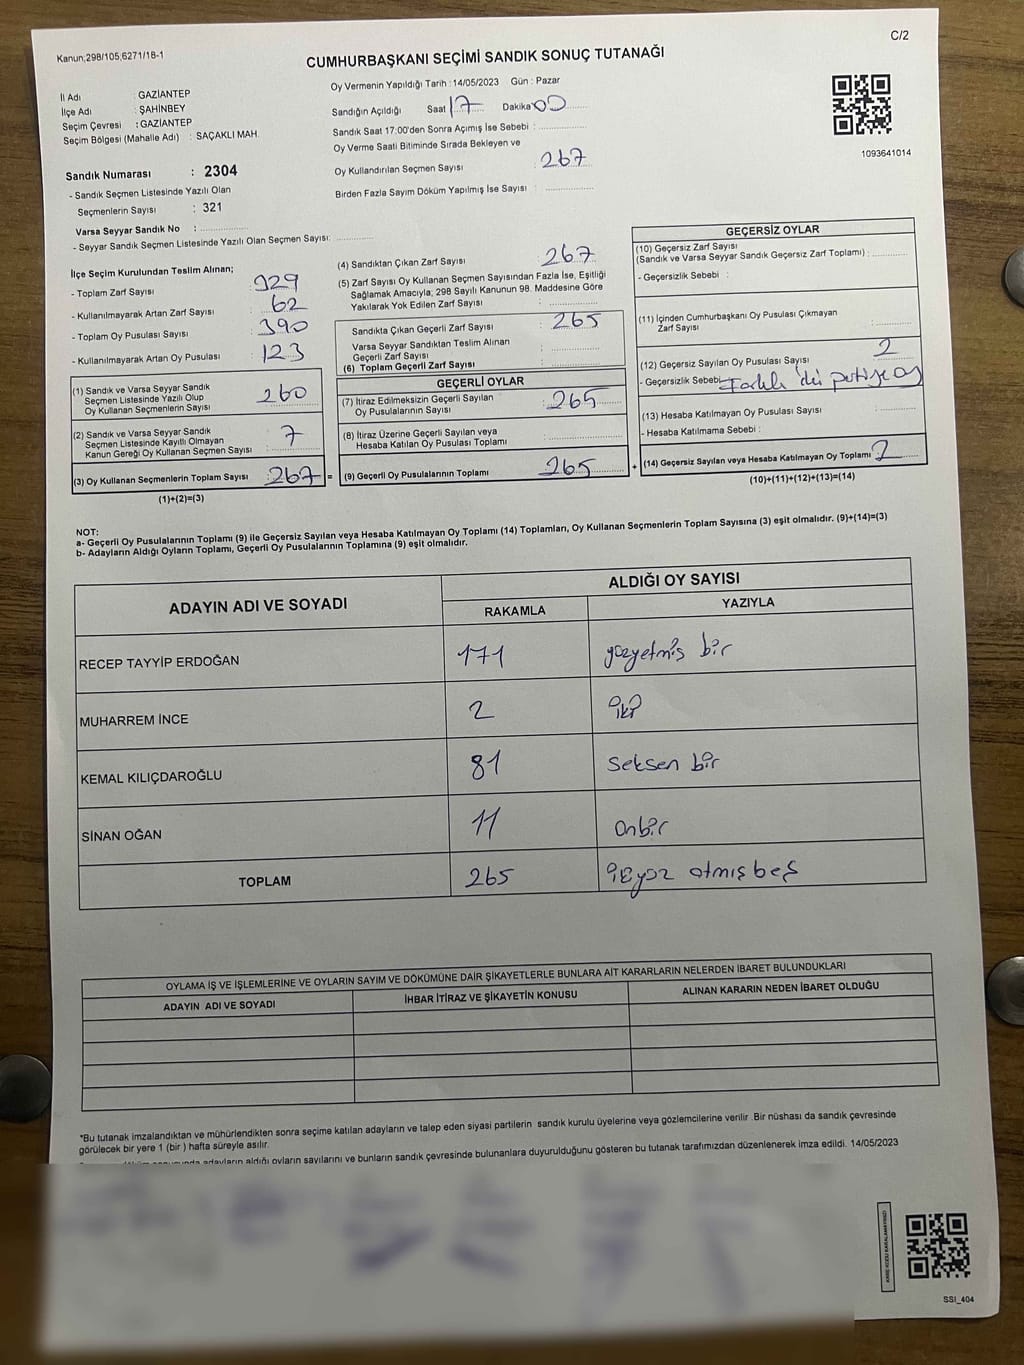 Kanun;298/105;6271/18-1
C/2
CUMHURBAŞKANI SEÇİMİ SANDIK SONUÇ TUTANAĞI
İl Adı : GAZİANTEP
İlçe Adı : ŞAHİNBEY
Seçim Çevresi : GAZİANTEP
Seçim Bölgesi (Mahalle Adı) : SAÇAKLI MAH.
Sandık Numarası : 2304
- Sandık Seçmen Listesinde Yazılı Olan
Seçmenlerin Sayısı : 321
Varsa Seyyar Sandık No :
- Seyyar Sandık Seçmen Listesinde Yazılı Olan Seçmen Sayısı:
Oy Vermenin Yapıldığı Tarih : 14/05/2023 Gün : Pazar
Sandığın Açıldığı Saat 17 Dakika 00
Sandık Saat 17:00'den Sonra Açımış İse Sebebi :
Oy Verme Saati Bitiminde Sırada Bekleyen ve
Oy Kullandırılan Seçmen Sayısı 267
Birden Fazla Sayım Döküm Yapılmış İse Sayısı :
1093641014
İlçe Seçim Kurulundan Teslim Alınan;
- Toplam Zarf Sayısı 329
- Kullanılmayarak Artan Zarf Sayısı : 62
- Toplam Oy Pusulası Sayısı : 390
- Kullanılmayarak Artan Oy Pusulası : 123
(1) Sandık ve Varsa Seyyar Sandık
Seçmen Listesinde Yazılı Olup
Oy Kullanan Seçmenlerin Sayısı : 260
(2) Sandık ve Varsa Seyyar Sandık
Seçmen Listesinde Kayıtlı Olmayan
Kanun Gereği Oy Kullanan Seçmen Sayısı : 7
(3) Oy Kullanan Seçmenlerin Toplam Sayısı : 267 =
(1)+(2)=(3)
(4) Sandıktan Çıkan Zarf Sayısı : 267
(5) Zarf Sayısı Oy Kullanan Seçmen Sayısından Fazla İse, Eşitliği
Sağlamak Amacıyla; 298 Sayılı Kanunun 98. Maddesine Göre
Yakılarak Yok Edilen Zarf Sayısı :
Sandıkta Çıkan Geçerli Zarf Sayısı : 265
Varsa Seyyar Sandıktan Teslim Alınan
Geçerli Zarf Sayısı :
(6) Toplam Geçerli Zarf Sayısı :
GEÇERLİ OYLAR
(7) İtiraz Edilmeksizin Geçerli Sayılan
Oy Pusulalarının Sayısı : 265
(8) İtiraz Üzerine Geçerli Sayılan veya
Hesaba Katılan Oy Pusulası Toplamı :
(9) Geçerli Oy Pusulalarının Toplamı : 265 +
GEÇERSİZ OYLAR
(10) Geçersiz Zarf Sayısı
(Sandık ve Varsa Seyyar Sandık Geçersiz Zarf Toplamı) :
- Geçersizlik Sebebi :
(11) İçinden Cumhurbaşkanı Oy Pusulası Çıkmayan
Zarf Sayısı :
(12) Geçersiz Sayılan Oy Pusulası Sayısı : 2
- Geçersizlik Sebebi Farklı iki partiye oy
(13) Hesaba Katılmayan Oy Pusulası Sayısı :
- Hesaba Katılmama Sebebi :
(14) Geçersiz Sayılan veya Hesaba Katılmayan Oy Toplamı 2
(10)+(11)+(12)+(13)=(14)
NOT:
a- Geçerli Oy Pusulalarının Toplamı (9) ile Geçersiz Sayılan veya Hesaba Katılmayan Oy Toplamı (14) Toplamları, Oy Kullanan Seçmenlerin Toplam Sayısına (3) eşit olmalıdır. (9)+(14)=(3)
b- Adayların Aldığı Oyların Toplamı, Geçerli Oy Pusulalarının Toplamına (9) eşit olmalıdır.
ADAYIN ADI VE SOYADI
ALDIĞI OY SAYISI
RAKAMLA YAZIYLA
RECEP TAYYİP ERDOĞAN 171 yüzyetmiş bir
MUHARREM İNCE 2 iki
KEMAL KILIÇDAROĞLU 81 Seksen bir
SİNAN OĞAN 11 Onbir
TOPLAM 265 ikiyüz atmışbeş
OYLAMA İŞ VE İŞLEMLERİNE VE OYLARIN SAYIM VE DÖKÜMÜNE DAİR ŞİKAYETLERLE BUNLARA AİT KARARLARIN NELERDEN İBARET BULUNDUKLARI
ADAYIN ADI VE SOYADI İHBAR İTİRAZ VE ŞİKAYETİN KONUSU ALINAN KARARIN NEDEN İBARET OLDUĞU
*Bu tutanak imzalandıktan ve mühürlendikten sonra seçime katılan adayların ve talep eden siyasi partilerin sandık kurulu üyelerine veya gözlemcilerine verilir .Bir nüshası da sandık çevresinde
görülecek bir yere 1 (bir ) hafta süreyle asılır.
adayların aldığı oyların sayılarını ve bunların sandık çevresinde bulunanlara duyurulduğunu gösteren bu tutanak tarafımızdan düzenlenerek imza edildi. 14/05/2023
SSI_404